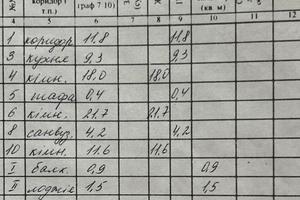 коридор і
т.п.) (граф 7-10) (кв м)
4 5 6 7 8 9 10 11 12
1 коридор 11,8 11,8
3 кухня 9,3 9,3
4 кімн. 18,0 18,0
5 шафа 0,4 0,4
6 кімн. 21,7 21,7
8 санвуз. 4,2 4,2
10 кімн. 11,6 11,6
I балк. 0,9 0,9
II лоджія 1,5 1,5